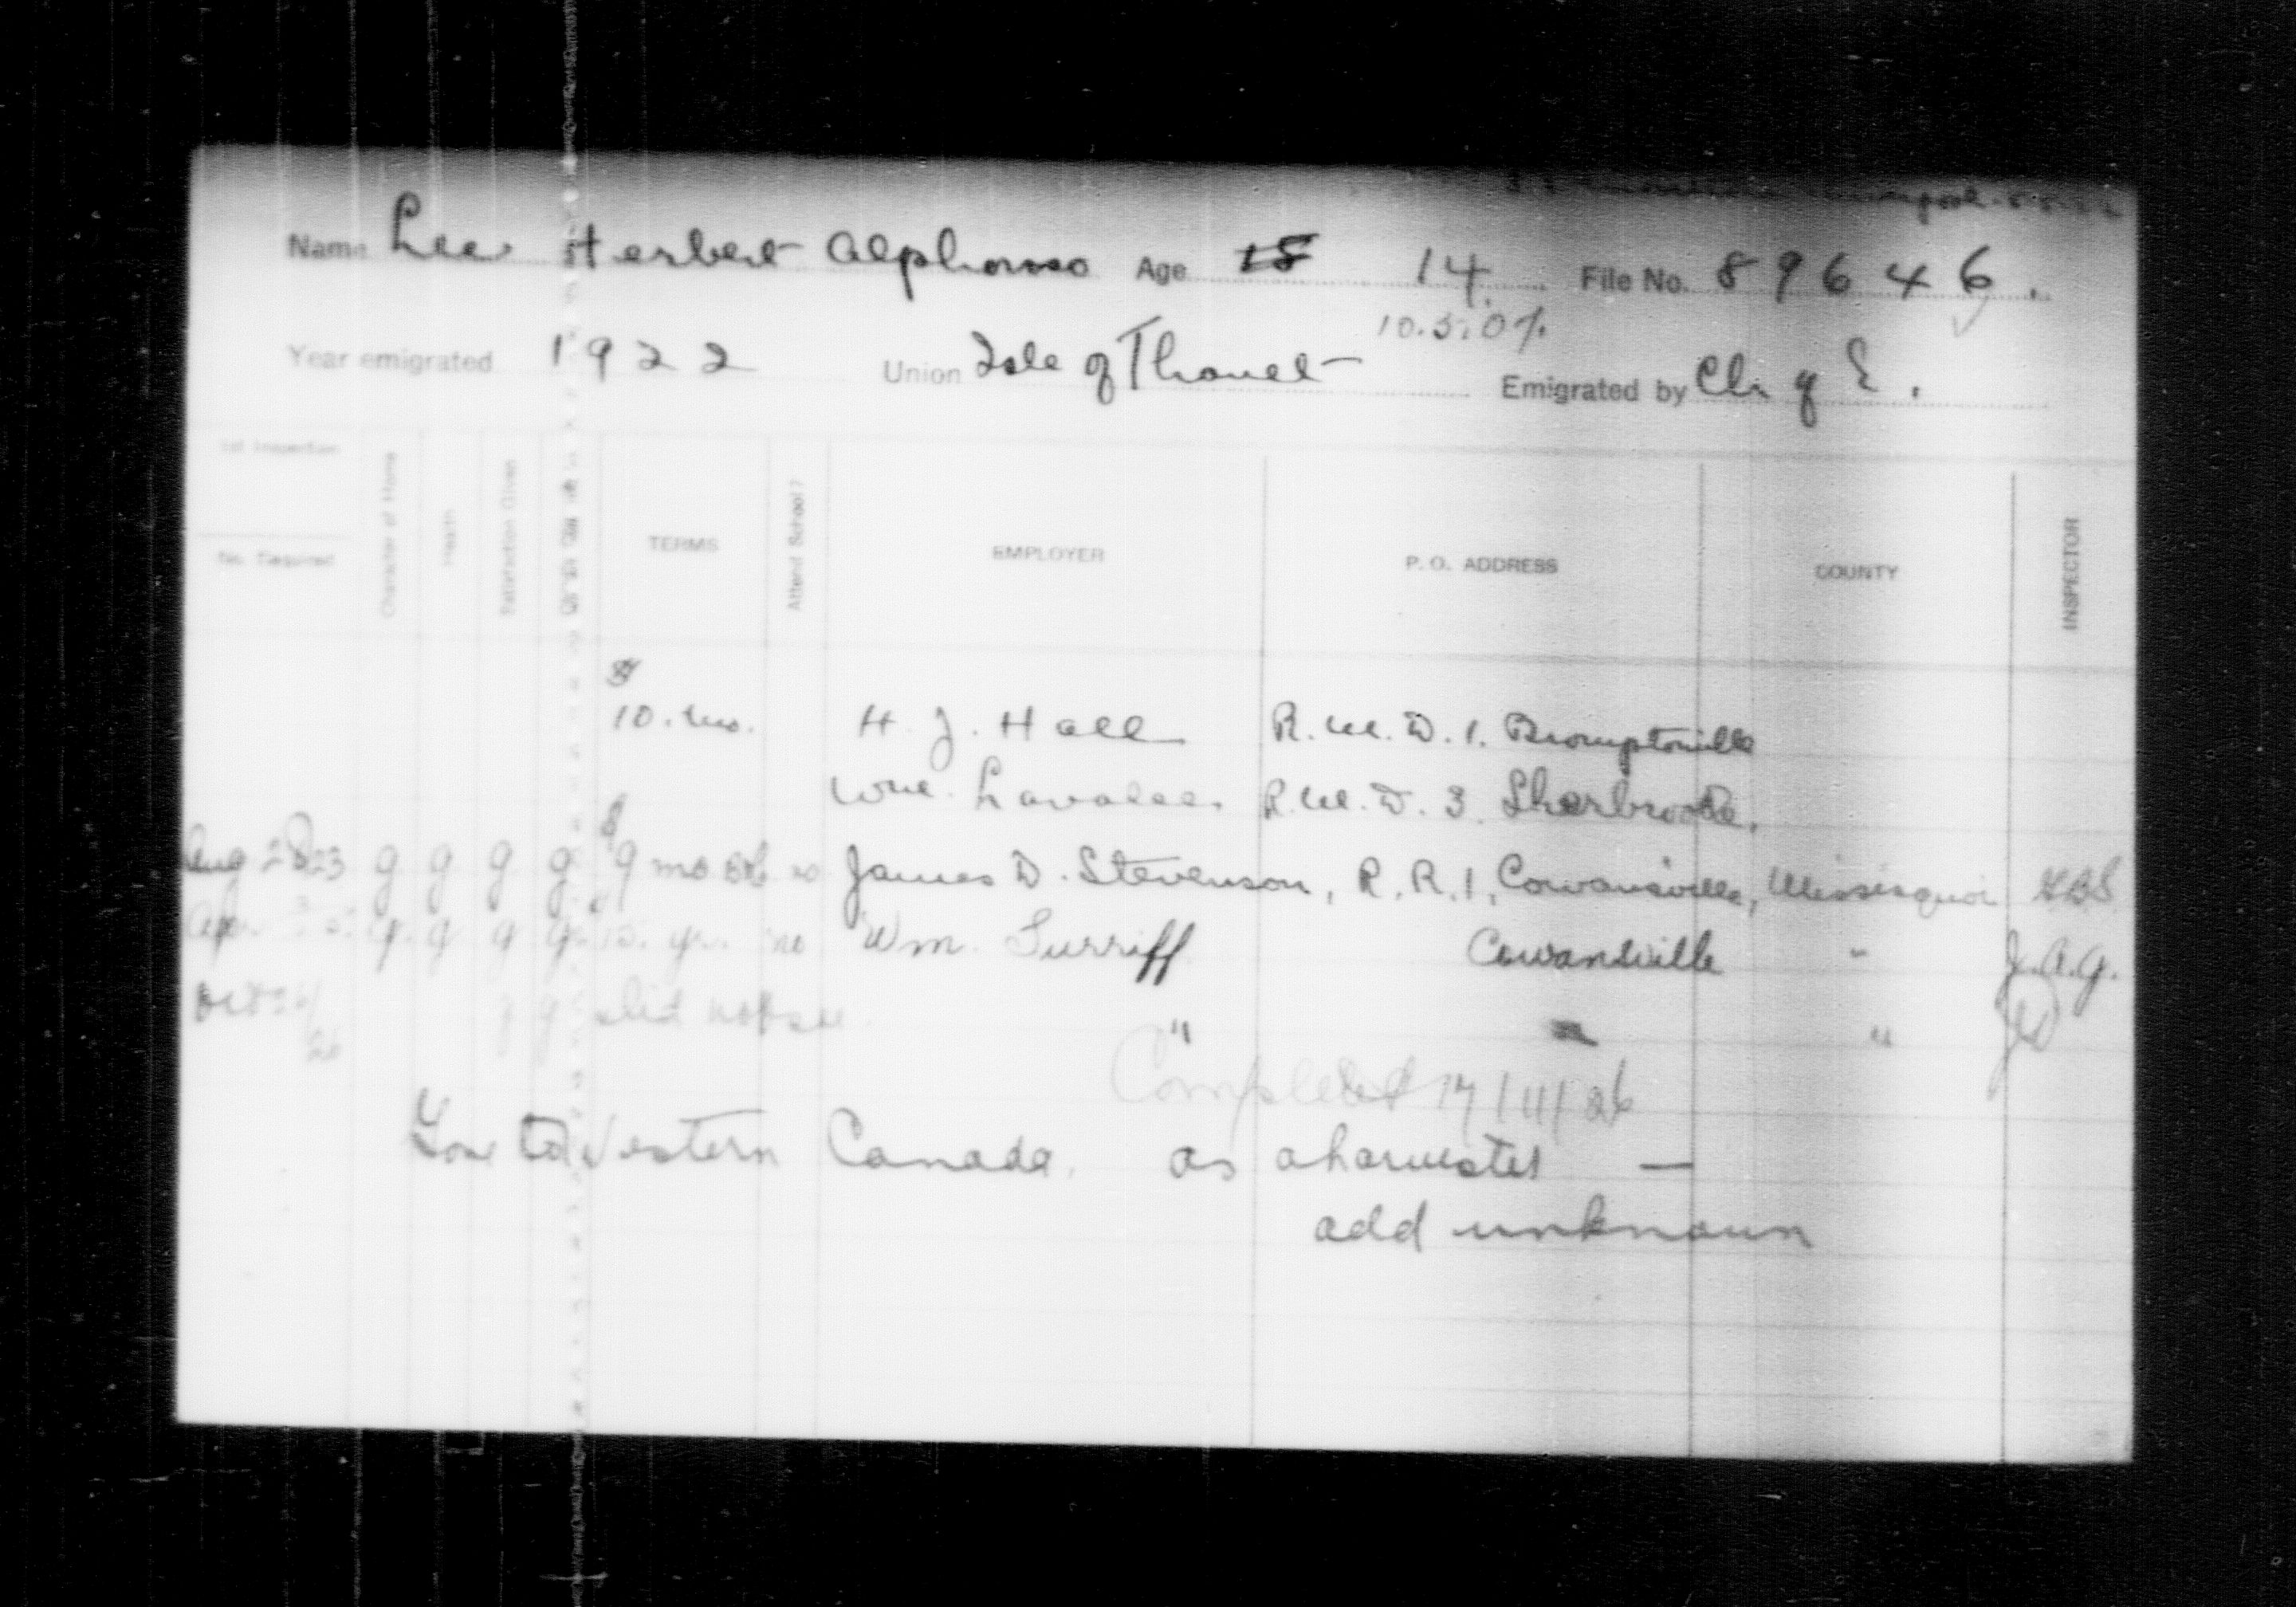 Name Lee Herbert Alphonso Age 18 14. File No. 89646.
10.5.07.
Year emigrated 1922 Union Isle of Thanet Emigrated by Ch of E.
1st Inspection
No. Required
Character of Home
Health
Satisfaction Given
TERMS
Attend School?
EMPLOYER
P. O. ADDRESS
COUNTY
INSPECTOR
10. mo. H. J. Hall R.M.D. 1. Bromptonville
Wm. Lavallee. R.M.D. 3. Sherbrooke.
Aug 28 23 g g g g $9 mo no James D. Stevenson, R.R.1, Cowansville, Missisquoi
Apr. g. g g g. 15. yr. no Wm. Turriff Cowansville " J.A.G.
Oct 26 g g did not see " " "
Completed 17/11/26
Gone to Western Canada. as a harvester —
add unknown